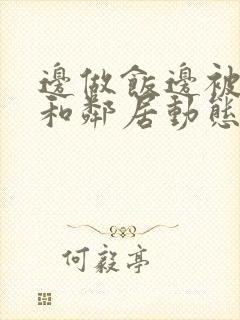 邊做飯邊被
和鄰居動態
何毅亭